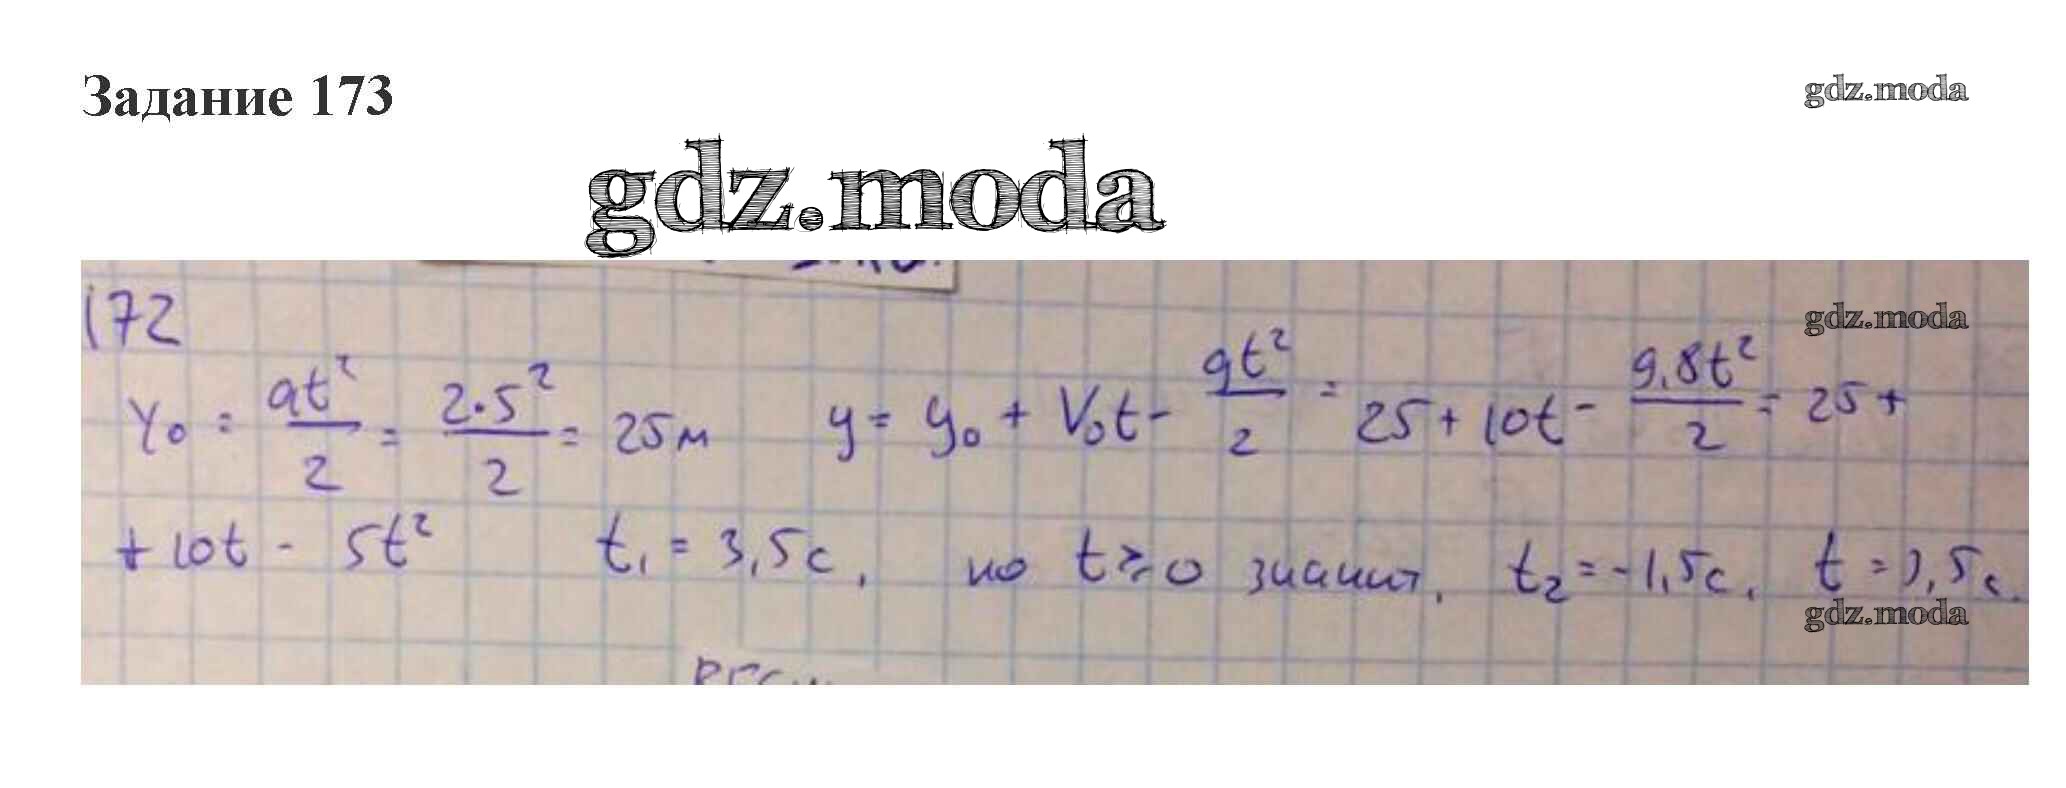 Задание 173
gdz.moda
gdz.moda
172
gdz.moda
y₀ = at²/2 = 2·5²/2 = 25м y = y₀ + V₀t - gt²/2 = 25 + 10t - 9,8t²/2 = 25 +
+ 10t - 5t² t₁ = 3,5с, но t ≥ 0 значит, t₂ = -1,5с, t = 3,5с.
gdz.moda